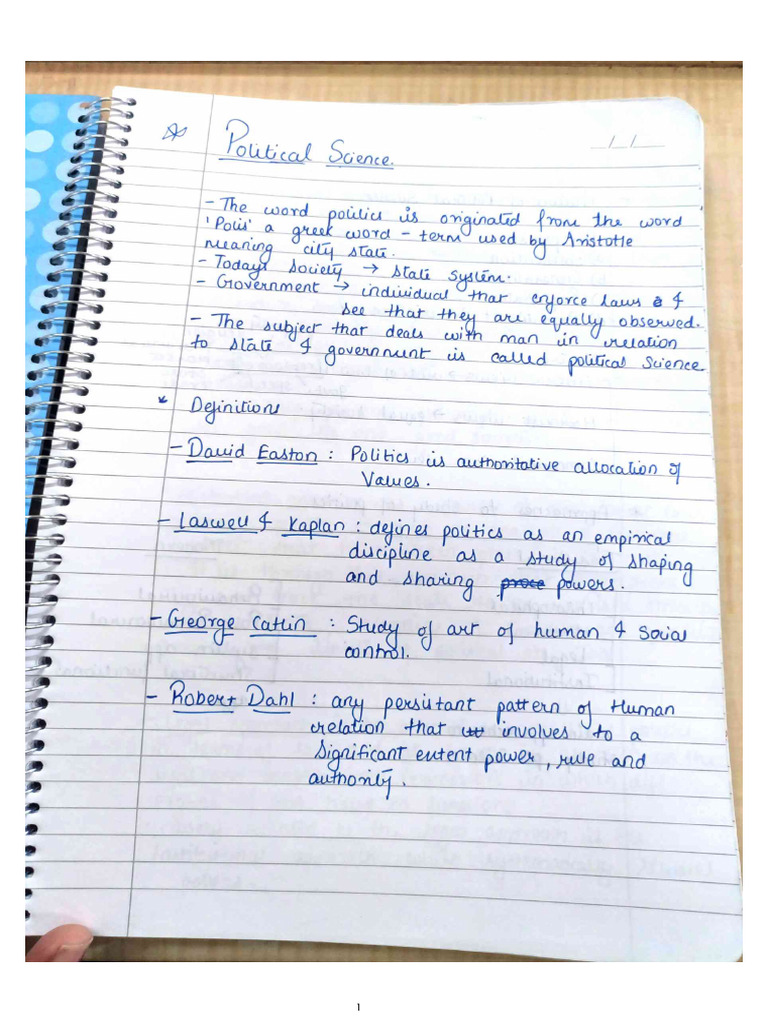 Political Science.
/ /
- The word politics is originated from the word
'Polis' a greek word - term used by Aristotle
meaning city state.
- Todays society → state system.
- Government → individual that enforce laws &
see that they are equally observed.
- The subject that deals with man in relation
to state & government is called political Science.
* Definitions
- David Easton : Politics is authoritative allocation of
Values.
- Laswell & Kaplan : defines politics as an empirical
discipline as a study of shaping
and sharing powers.
- George Catlin : Study of art of human & Social
control.
- Robert Dahl : any persistant pattern of Human
relation that involves to a
significant extent power, rule and
authority.
1